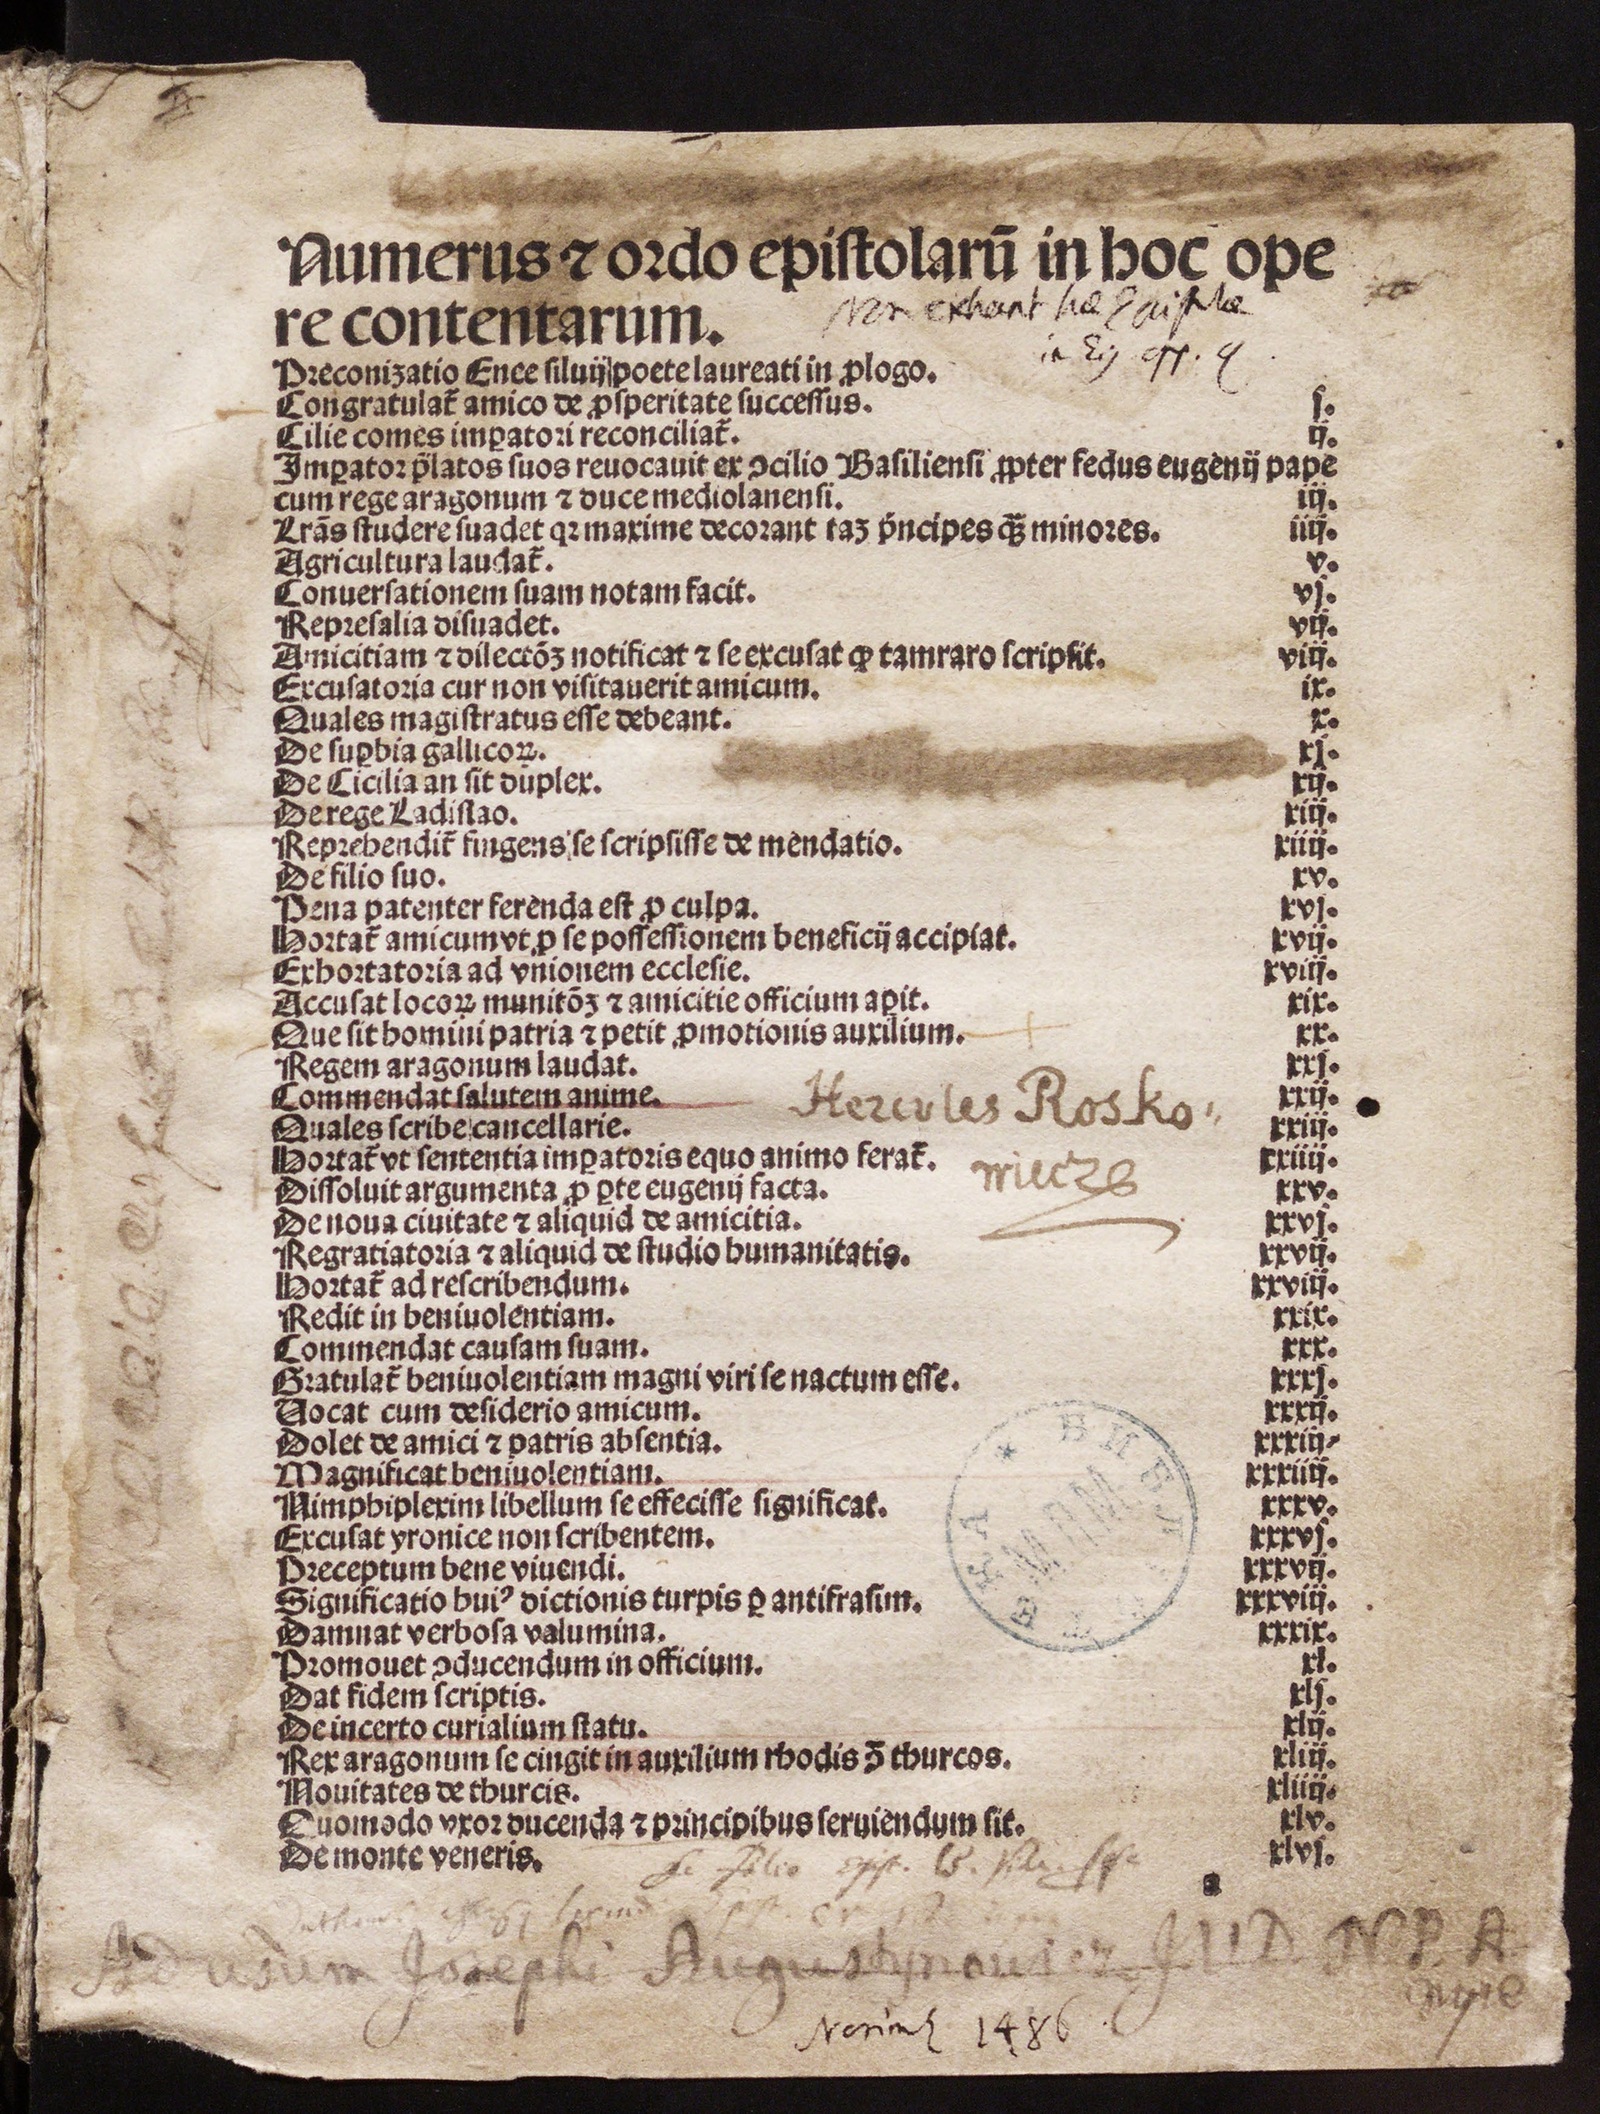 Numerus ⁊ ordo epistolarū in hoc ope
re contentarum.
Non extant hæ Epistolæ
in
Preconizatio Enee siluij poete laureati in ꝓlogo.
Congratulat̄ amico de ꝓsperitate successus. j.
Cilie comes imꝑatori reconciliat̄. ij.
Imꝑator p̄latos suos reuocauit ex ↄcilio Basiliensi ꝓpter fedus eugenij pape
cum rege aragonum ⁊ duce mediolanensi. iij.
Lr̄as studere suadet qꝛ maxime decorant taꝫ p̄ncipes qꝫ̄ minores. iiij.
Agricultura laudat̄. v.
Conuersationem suam notam facit. vj.
Represalia disuadet. vij.
Amicitiam ⁊ dilectōꝫ notificat ⁊ se excusat ꝙ tamraro scripsit. viij.
Excusatoria cur non visitauerit amicum. ix.
Quales magistratus esse debeant. x.
De suꝑbia gallicoꝝ. xj.
De Cicilia an sit duplex. xij.
De rege Ladislao. xiij.
Reprehendit̄ fingens se scripsisse de mendatio. xiiij.
De filio suo. xv.
Pena patenter ferenda est ꝓ culpa. xvj.
Hortat̄ amicum vt ꝓ se possessionem beneficij accipiat. xvij.
Exhortatoria ad vnionem ecclesie. xviij.
Accusat locoꝝ munitōꝫ ⁊ amicitie officium aꝑit. xix.
Que sit homini patria ⁊ petit ꝓmotionis auxilium. xx.
Regem aragonum laudat. xxj.
Commendat salutem anime. xxij.
Hercules Rosko
Quales scribe cancellarie. xxiij.
Hortat̄ vt sententia imꝑatoris equo animo ferat̄. xxiiij.
wiecze
Dissoluit argumenta ꝓ ꝑte eugenij facta. xxv.
De noua ciuitate ⁊ aliquid de amicitia. xxvj.
Regratiatoria ⁊ aliquid de studio humanitatis. xxvij.
Hortat̄ ad rescribendum. xxviij.
Redit in beniuolentiam. xxix.
Commendat causam suam. xxx.
Gratulat̄ beniuolentiam magni viri se nactum esse. xxxj.
Uocat cum desiderio amicum. xxxij.
Dolet de amici ⁊ patris absentia. xxxiij.
Magnificat beniuolentiam. xxxiiij.
Nimphiplexim libellum se effecisse significat. xxxv.
Excusat yronice non scribentem. xxxvj.
Preceptum bene viuendi. xxxvij.
Significatio huiꝰ dictionis turpis ꝑ antifrasim. xxxviij.
Damnat verbosa valumina. xxxix.
Promouet ↄducendum in officium. xl.
Dat fidem scriptis. xlj.
De incerto curialium statu. xlij.
Rex aragonum se cingit in auxilium rhodis ↄ̄ thurcos. xliij.
Nouitates de thurcis. xliiij.
Quomodo vxor ducenda ⁊ principibus seruiendum sit. xlv.
De monte veneris. xlvj.
Ad usum Josephi Augustynowicz J U D N P. A
1486